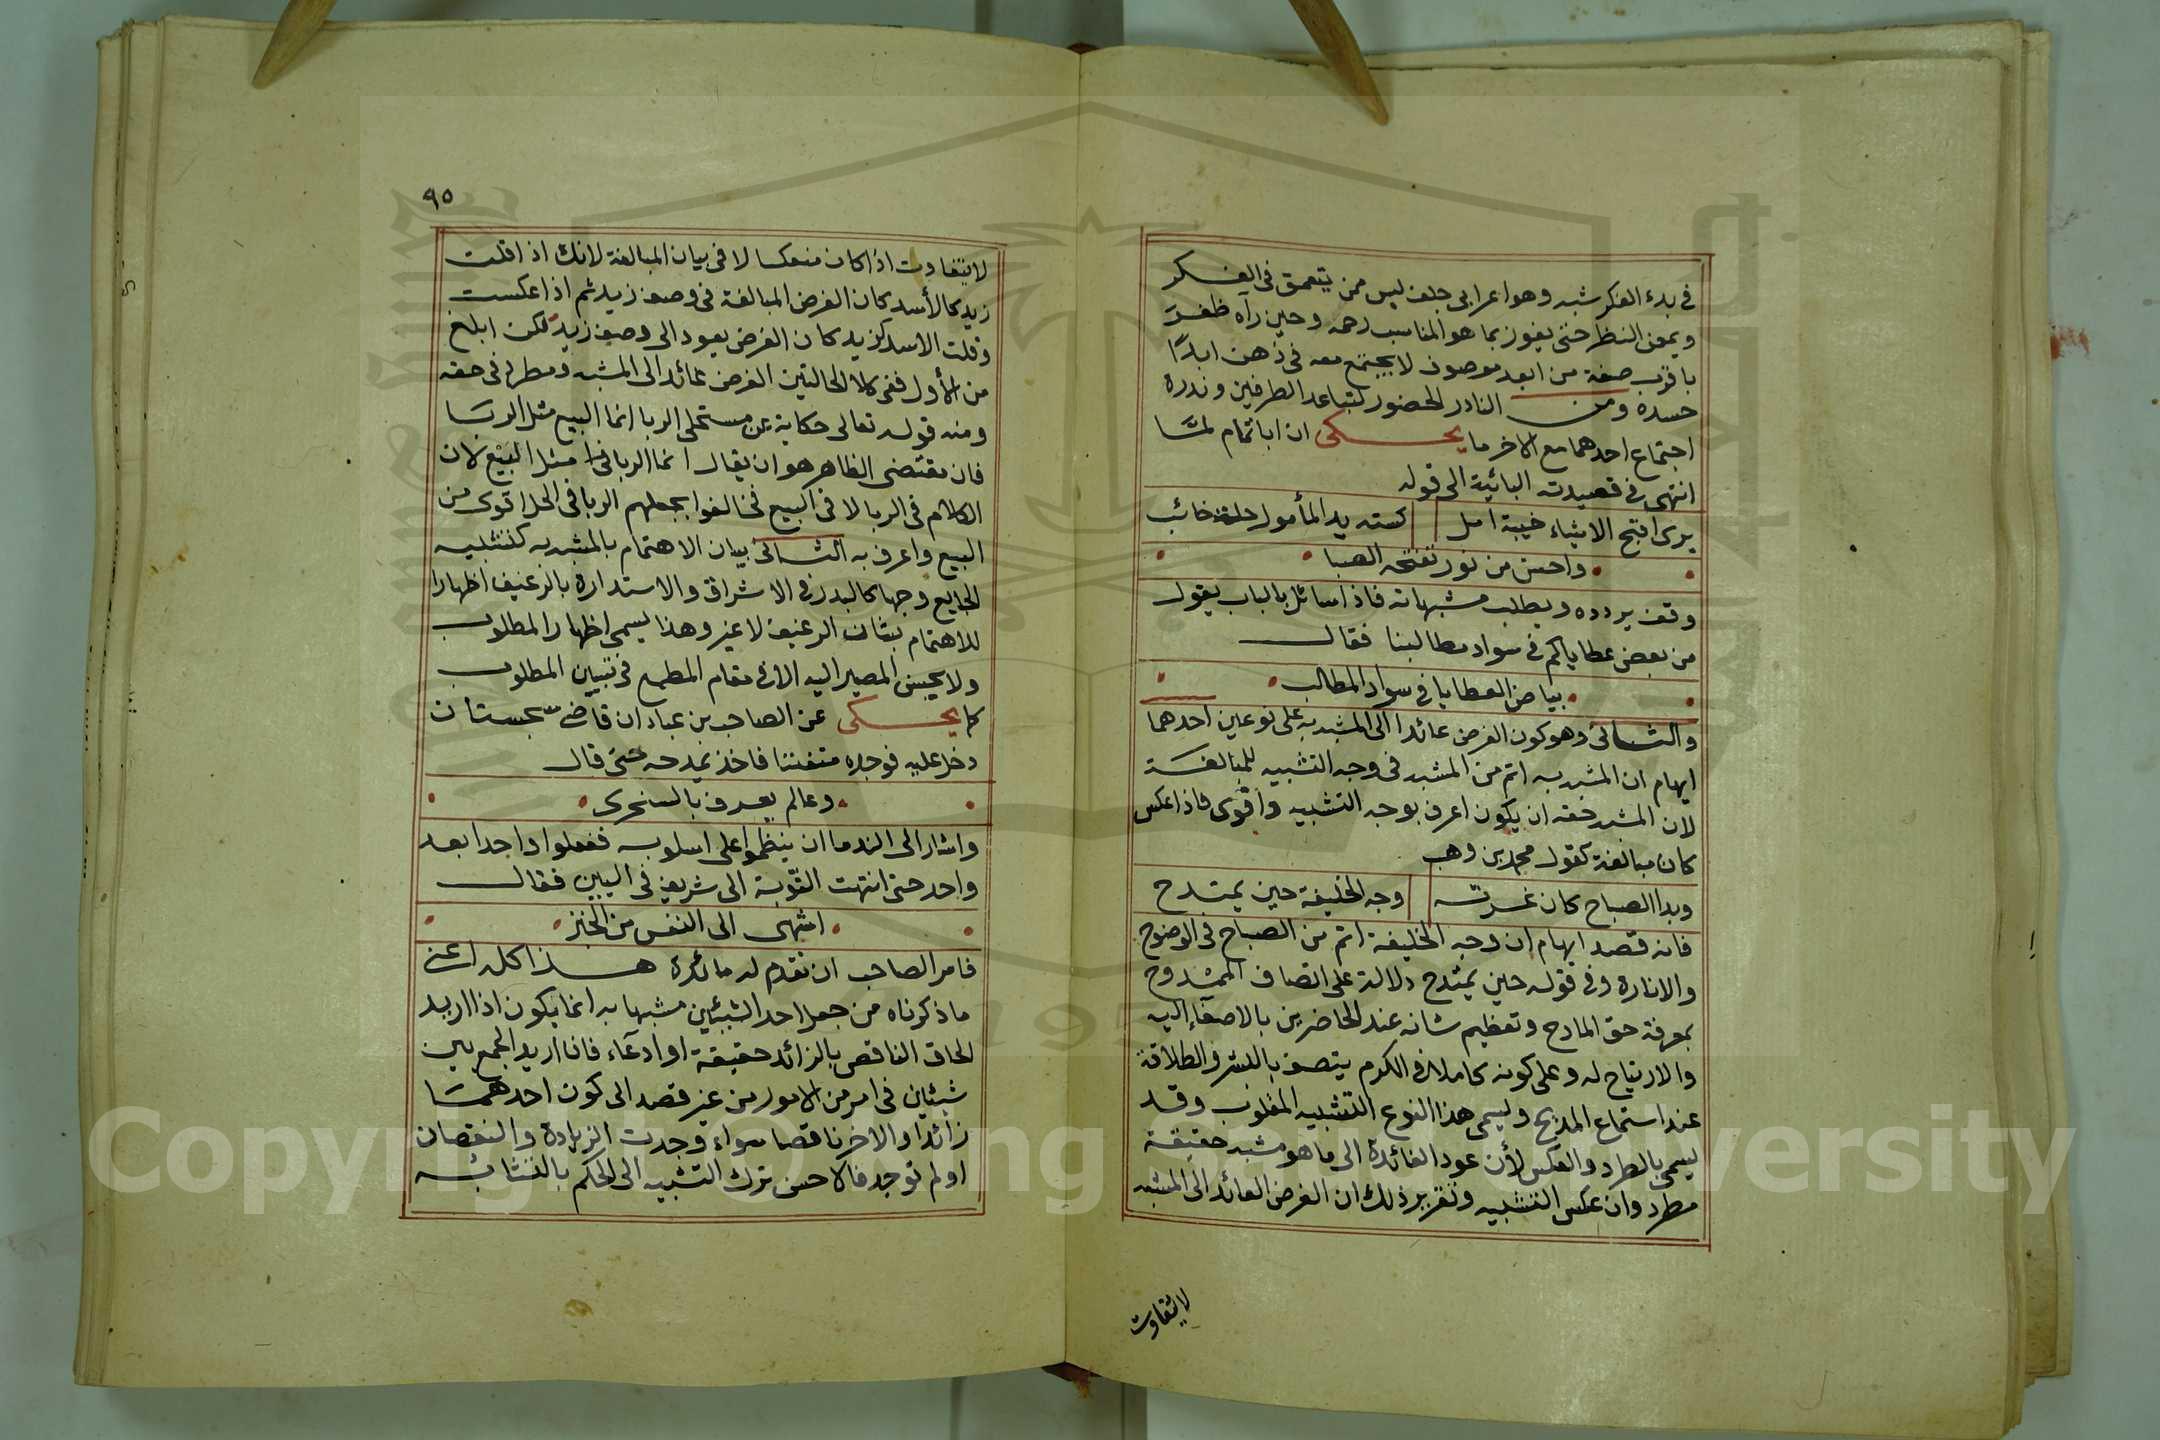 في بدء الفكر شبه وهو اعرابي جلف ليس ممن يتعمق في الفكر
ويمعن النظر حتى يفوز بما هو المناسب رحمه وحين رآه ظفر
باقرب صفة من ابعد موصوف لا يجتمع معه في ذهن ابدًا
حسده ومن النادر الحضور لتباعد الطرفين وندرة
اجتماع احدهما مع الاخر ما يحكى ان ابا تمام لمّا
انتهى في قصيدته البائية الى قوله
يرى اقبح الاشياء خيبة امل كسته يد المأمول حلة خائب
واحسن من نور تفتحه الصبا
وقف يردده ويطلب مشبهاته فاذا سائل بالباب يقول
من بعض عطاياكم في سواد مطالبنا فقال
بياض العطايا في سواد المطالب
والثاني وهو كون الغرض عائدا الى المشبه به على نوعين احدهما
ايهام ان المشبه به اتم من المشبه في وجه التشبيه للمبالغة
لان المشبه حقه ان يكون اعرف بوجه التشبيه واقوى فاذا عكس
كان مبالغة كقول محمد بن وهب
وبدا الصباح كان غرته وجه الخليفة حين يمتدح
فانه قصد ايهام ان وجه الخليفة اتم من الصباح في الوضوح
والانارة وفي قوله حين يمتدح دلالة على اتصاف الممدوح
بمعرفة حق المادح وتعظيم شانه عند الحاضرين بالاصغاء اليه
والارتياح له وعلى كونه كاملا في الكرم يتصف بالبشر والطلاقة
عند استماع المديح ويسمى هذا النوع التشبيه المقلوب وقد
يسمى بالطرد والعكس لأن عود الفائدة الى ما هو مشبه حقيقة
مطرد وان عكس التشبيه وتقرير ذلك ان الغرض العائد الى المشبه
لا يتفاوت
٩٥
لا يتفاوت اذا كان منعكسا لا في بيان المبالغة لانك اذا قلت
زيد كالأسد كان الغرض المبالغة في وصف زيد ثم اذا عكست
وقلت الاسد كزيد كان الغرض يعود الى وصف زيد لكن ابلغ
من الأول ففي كلا الحالتين الغرض عائد الى المشبه ومطرد في حقه
ومنه قوله تعالى حكاية عن مستحلي الربا انما البيع مثل الربا
فان مقتضى الظاهر هو ان يقال انما الربا مثل البيع لان
الكلام في الربا لا في البيع فخالفوا بجعلهم الربا في الحل اقوى من
البيع واعرف به الثاني بيان الاهتمام بالمشبه به كتشبيه
الجايع وجها كالبدر في الاشراق والاستدارة بالرغيف اظهارا
للاهتمام بشان الرغيف لا غير وهذا يسمى اظهار المطلوب
ولا يحسن المصير اليه الا في مقام المطمع في تبيين المطلوب
كما يحكى عن الصاحب بن عباد ان قاضي سجستان
دخل عليه فوجده متفننا فاخذ يمدحه حتى قال
وعالم يعرف بالسنجرى
واشار الى الندما ان ينظموا على اسلوبه ففعلوا واحدا بعد
واحد حتى انتهت النوبة الى شريف في البين فقال
اشهى الى النفس من الخبز
فامر الصاحب ان تقدم له مائدة هذا كله اعني
ما ذكرناه من جعل احد الشيئين مشبها به انما يكون اذا اريد
الحاق الناقص بالزائد حقيقة او ادعاء فان اريد الجمع بين
شيئين في امر من الامور من غير قصد الى كون احدهما
زائدا والاخر ناقصا سواء وجدت الزيادة والنقصان
او لم توجد فالاحسن ترك التشبيه الى الحكم بالتشابه
Copyright © King Saud University